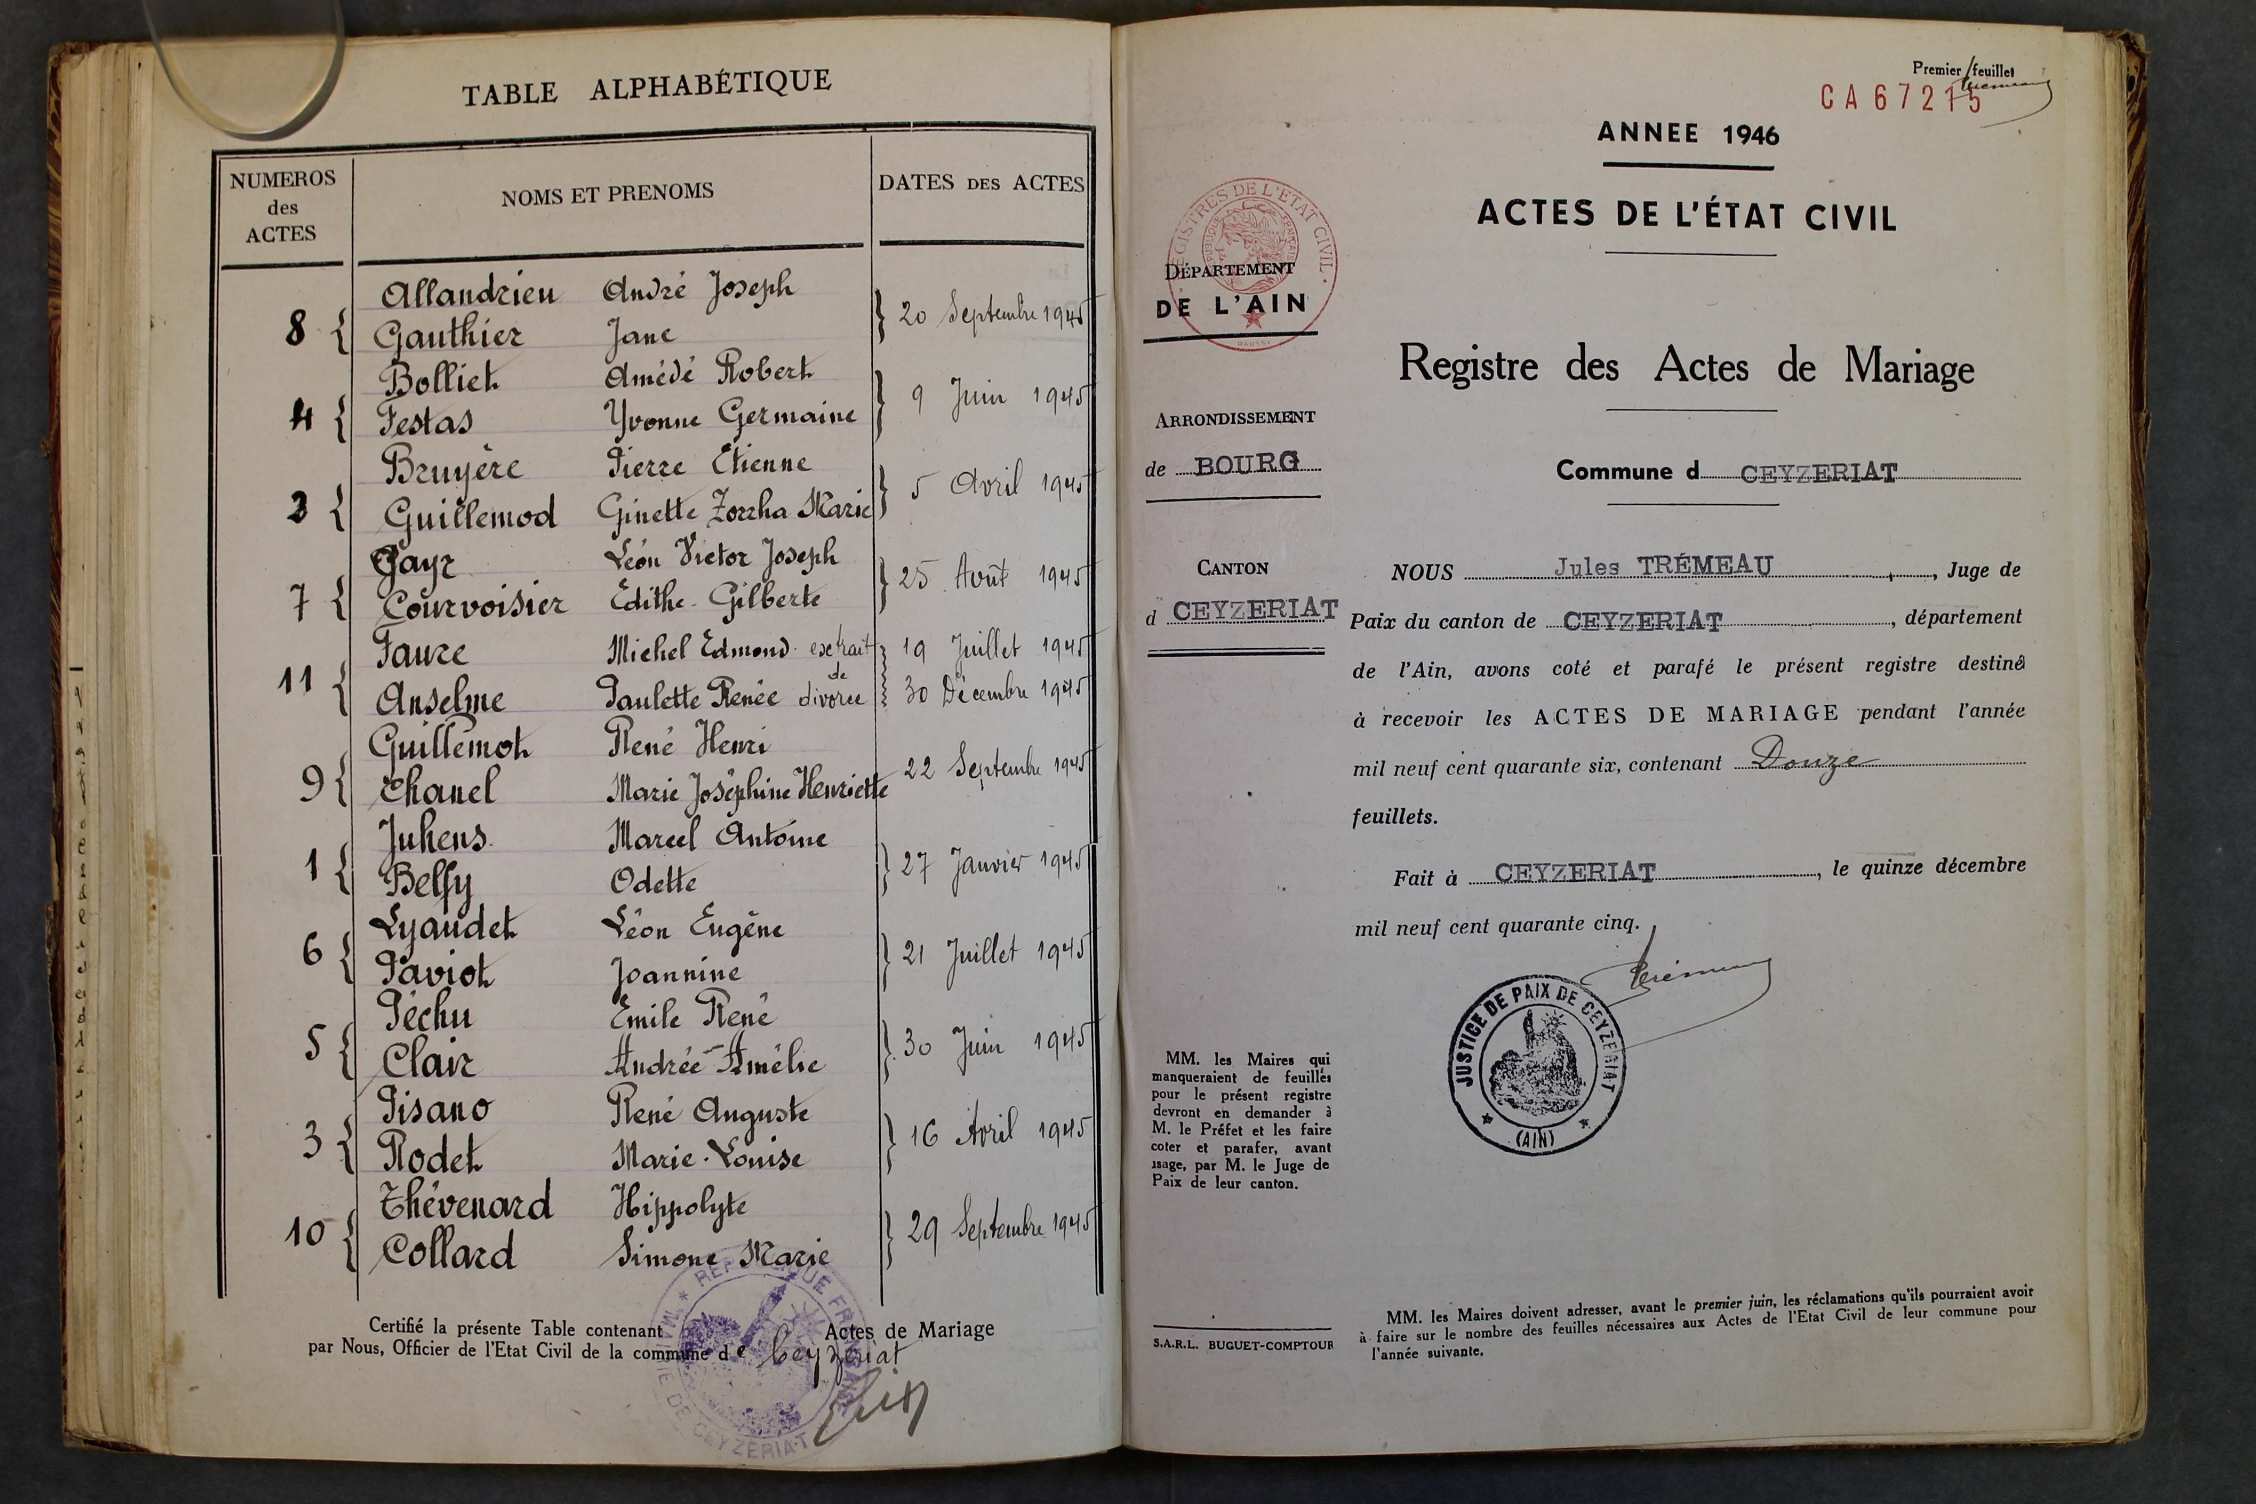 TABLE ALPHABÉTIQUE
NUMEROS des ACTES
NOMS ET PRENOMS
DATES DES ACTES
Allandrieu André Joseph
8 { Gauthier Jane } 20 Septembre 1945
Bolliet Amédé Robert
4 { Festas Yvonne Germaine } 9 Juin 1945
Bruyère Pierre Etienne
2 { Guillemod Ginette Zorzha Marie } 5 Avril 1945
Gayr Léon Victor Joseph
7 { Courvoisier Edithe Gilberte } 25 Août 1945
Faure Michel Edmond extrait 19 Juillet 1945
de
11 { Anselme Paulette Renée divorce 30 Décembre 1945
Guillemot René Henri
9 { Chanel Marie Joséphine Henriette 22 Septembre 1945
Juhens Marcel Antoine
1 { Belfy Odette } 27 Janvier 1945
Lyaudet Léon Eugène
6 { Paviot Joannine } 21 Juillet 1945
Péchu Emile René
5 { Clair Andrée Amélie } 30 Juin 1945
Pisano René Auguste
3 { Rodet Marie-Louise } 16 Avril 1945
Thévenard Hippolyte
10 { Collard Simone Marie } 29 Septembre 1945
Certifié la présente Table contenant Actes de Mariage
par Nous, Officier de l'Etat Civil de la commune de Ceyzeriat
RÉPUBLIQUE FRANÇAISE
MAIRIE DE CEYZERIAT
Premier feuillet
CA67215
ANNEE 1946
ACTES DE L'ÉTAT CIVIL
REGISTRES DE L'ETAT CIVIL
DÉPARTEMENT
DE L'AIN
Registre des Actes de Mariage
ARRONDISSEMENT
de BOURG
Commune d CEYZERIAT
CANTON
d CEYZERIAT
NOUS Jules TRÉMEAU, Juge de
Paix du canton de CEYZERIAT, département
de l'Ain, avons coté et parafé le présent registre destiné
à recevoir les ACTES DE MARIAGE pendant l'année
mil neuf cent quarante six, contenant Douze
feuillets.
Fait à CEYZERIAT, le quinze décembre
mil neuf cent quarante cinq.
Trémeau
JUSTICE DE PAIX DE CEYZERIAT
(AIN)
MM. les Maires qui
manqueraient de feuilles
pour le présent registre
devront en demander à
M. le Préfet et les faire
coter et parafer, avant
usage, par M. le Juge de
Paix de leur canton.
S.A.R.L. BUGUET-COMPTOUR
MM. les Maires doivent adresser, avant le premier juin, les réclamations qu'ils pourraient avoir
à faire sur le nombre des feuilles nécessaires aux Actes de l'Etat Civil de leur commune pour
l'année suivante.